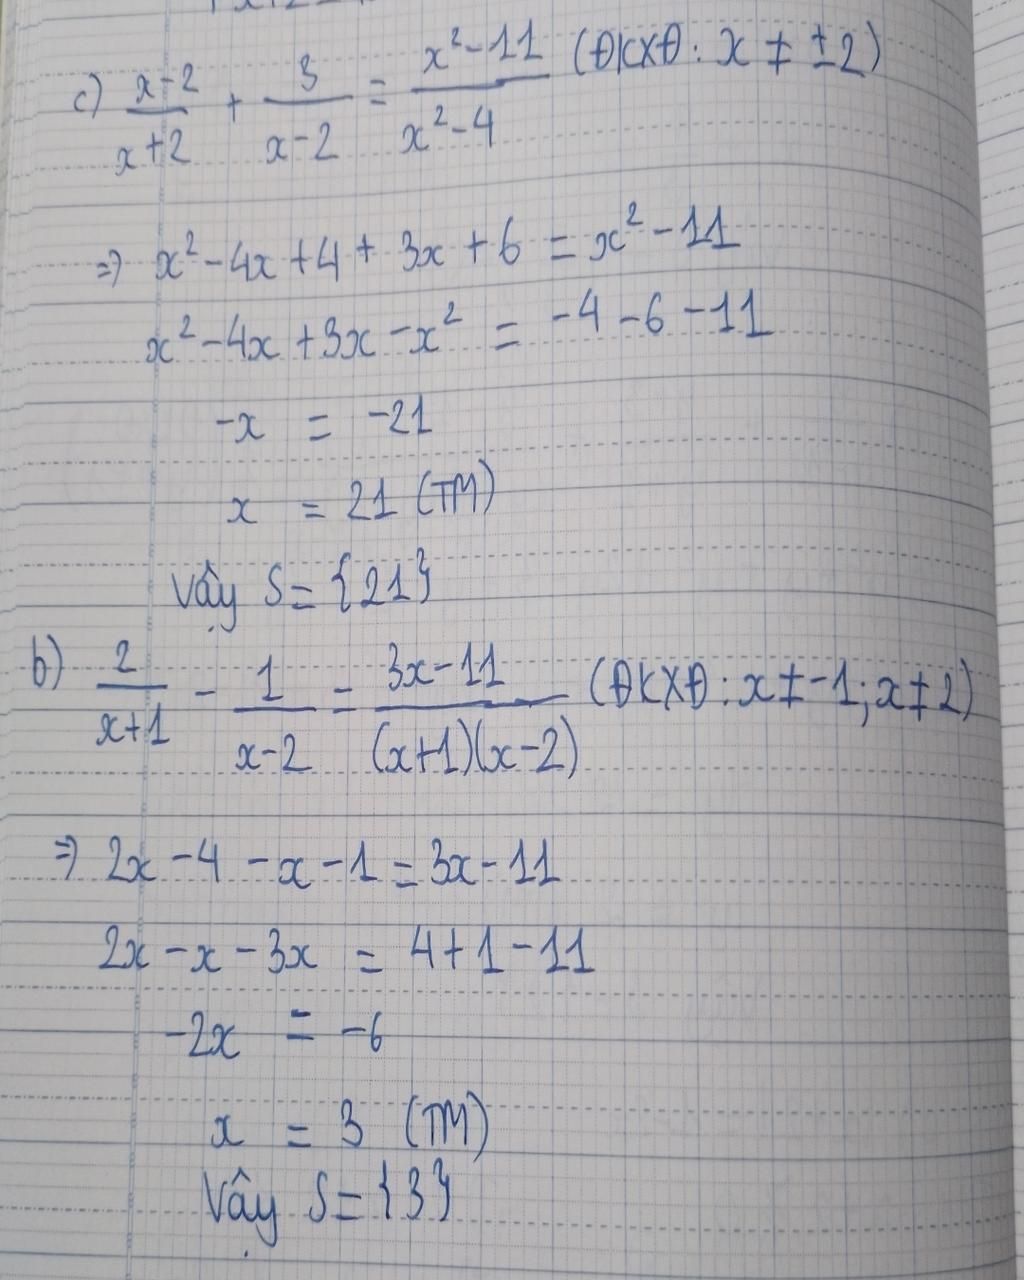 c) (x-2)/(x+2) + 3/(x-2) = (x²-11)/(x²-4) (ĐKXĐ: x ≠ ±2)
=> x² - 4x + 4 + 3x + 6 = x² - 11
x² - 4x + 3x - x² = -4 - 6 - 11
-x = -21
x = 21 (TM)
Vậy S = {21}
b) 2/(x+1) - 1/(x-2) = (3x-11)/((x+1)(x-2)) (ĐKXĐ: x ≠ -1; x ≠ 2)
=> 2x - 4 - x - 1 = 3x - 11
2x - x - 3x = 4 + 1 - 11
-2x = -6
x = 3 (TM)
Vậy S = {3}